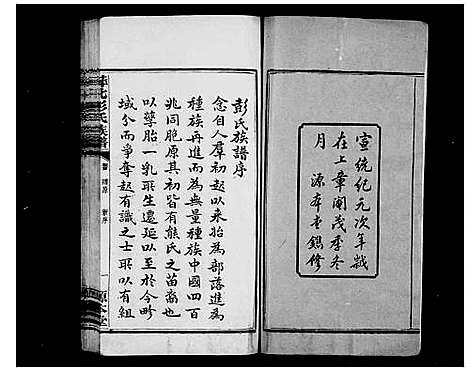 宣統紀元次年歲
在上章閹茂季冬
月　源本堂鐫修
彭氏族譜序
念自人羣初起以來始為部落進為
種族再進而為無量種族中國四百
兆同胞原其初皆有熊氏之苗裔也
以孳胎一乳耴生遷延以至於今畛
域分而爭奪起有識之士耴以有組
北彭氏族譜
序
一
源本堂